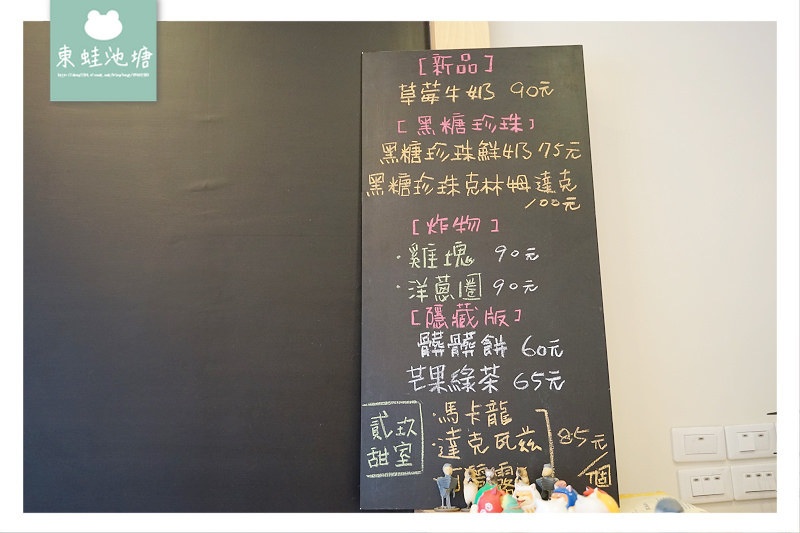 東蛙池塘
[新品]
草莓牛奶 90元
[黑糖珍珠]
黑糖珍珠鮮奶 75元
黑糖珍珠克林姆達克
100元
[炸物]
·雞塊 90元
·洋蔥圈 90元
[隱藏版]
髒髒餅 60元
芒果綠茶 65元
貳玖
甜室
·馬卡龍
·達克瓦茲
85元/個